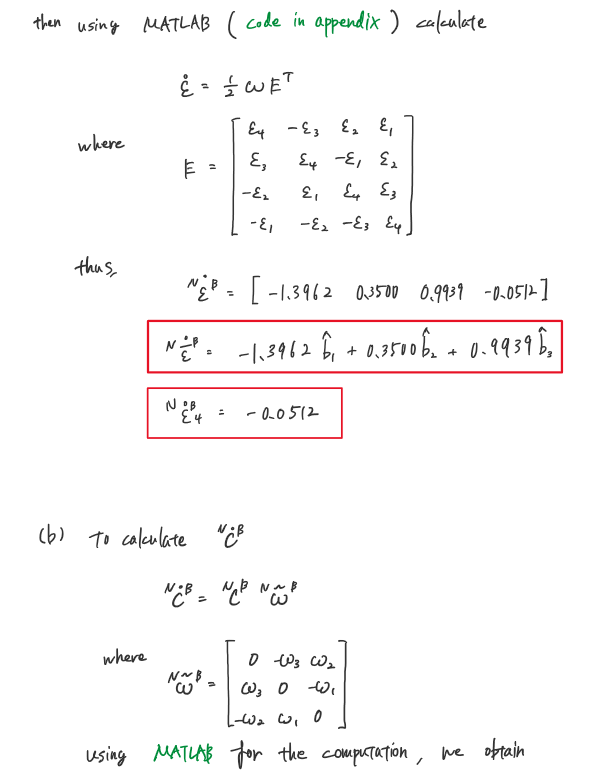 then using MATLAB ( code in appendix ) calculate
ε̇ = ½ ω E^T
where
E = [ ε₄ -ε₃ ε₂ ε₁
ε₃ ε₄ -ε₁ ε₂
-ε₂ ε₁ ε₄ ε₃
-ε₁ -ε₂ -ε₃ ε₄ ]
thus,
ᴺε̇ᴮ = [ -1.3962 0.3500 0.9939 -0.0512 ]
ᴺε̇ᴮ = -1.3962 b̂₁ + 0.3500 b̂₂ + 0.9939 b̂₃
ᴺε̇₄ᴮ = -0.0512
(b) To calculate ᴺĊᴮ
ᴺĊᴮ = ᴺCᴮ ᴺω̃ᴮ
where
ᴺω̃ᴮ = [ 0 -ω₃ ω₂
ω₃ 0 -ω₁
-ω₂ ω₁ 0 ]
using MATLAB for the computation, we obtain